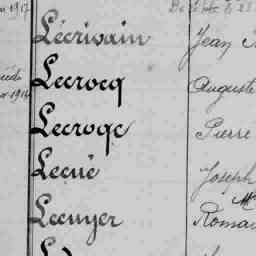 1917
Lécrivain Jean
Lecrocq Auguste
Lecroqc Pierre
1914
Lecué Joseph
Lecuyer Romain